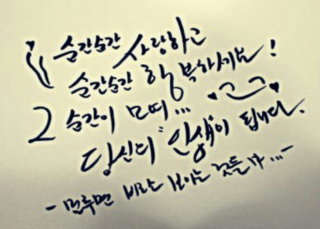 순간순간 사랑하고
순간순간 행복하세요!
그 순간이 모여...
당신의 "인생"이 됩니다.
- 멈추면 비로소 보이는 것들 ...-